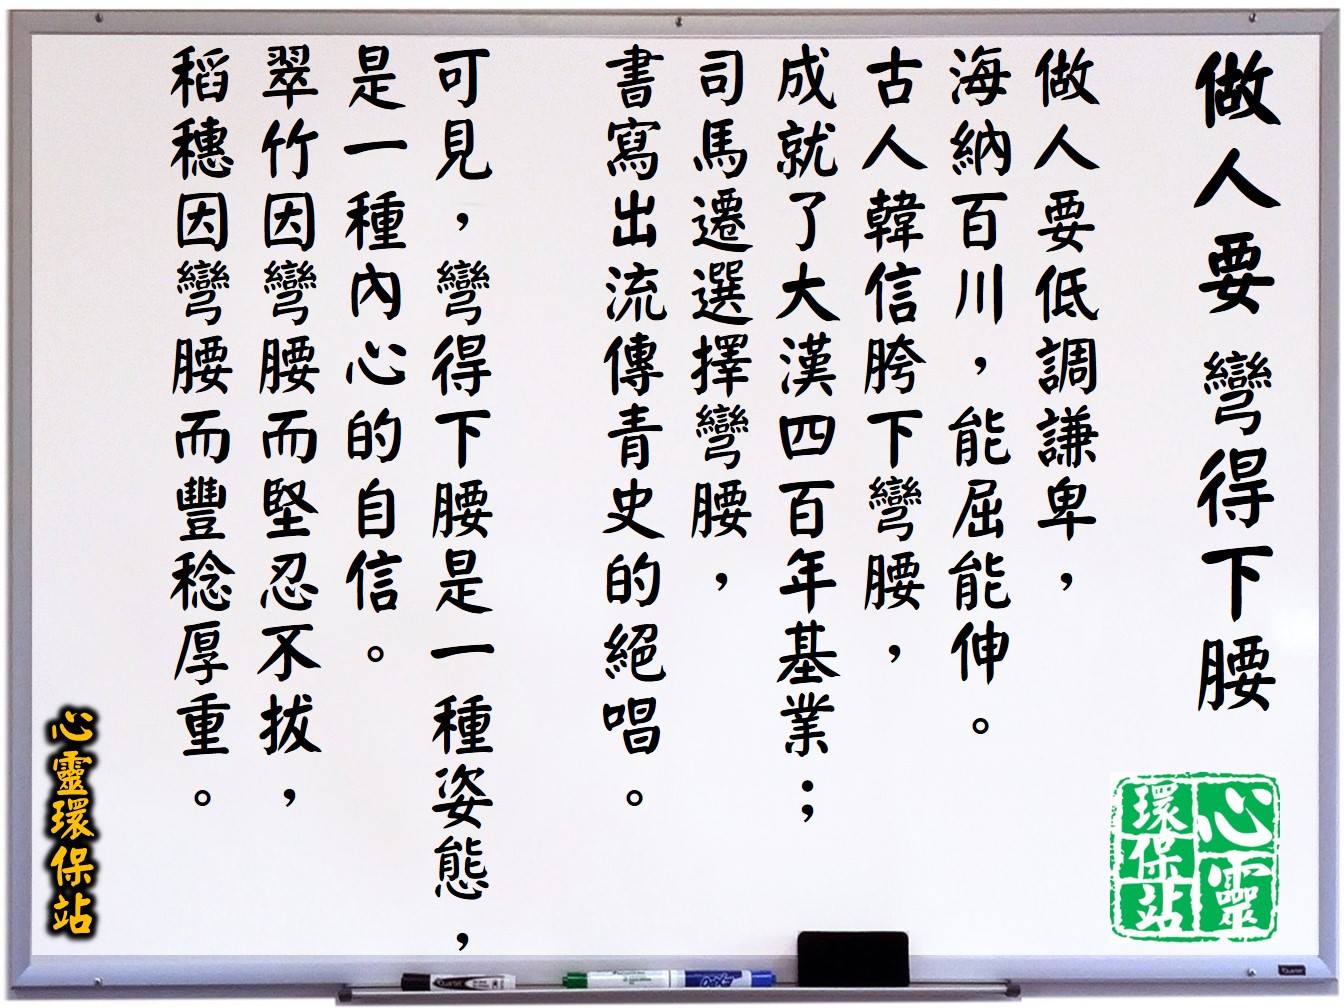 做人要彎得下腰
做人要低調謙卑，
海納百川，能屈能伸。
古人韓信胯下彎腰，
成就了大漢四百年基業；
司馬遷選擇彎腰，
書寫出流傳青史的絕唱。
可見，彎得下腰是一種姿態，
是一種內心的自信。
翠竹因彎腰而堅忍不拔，
稻穗因彎腰而豐稔厚重。
心靈環保站
心靈環保站
Quartet
EXPO
Quartet